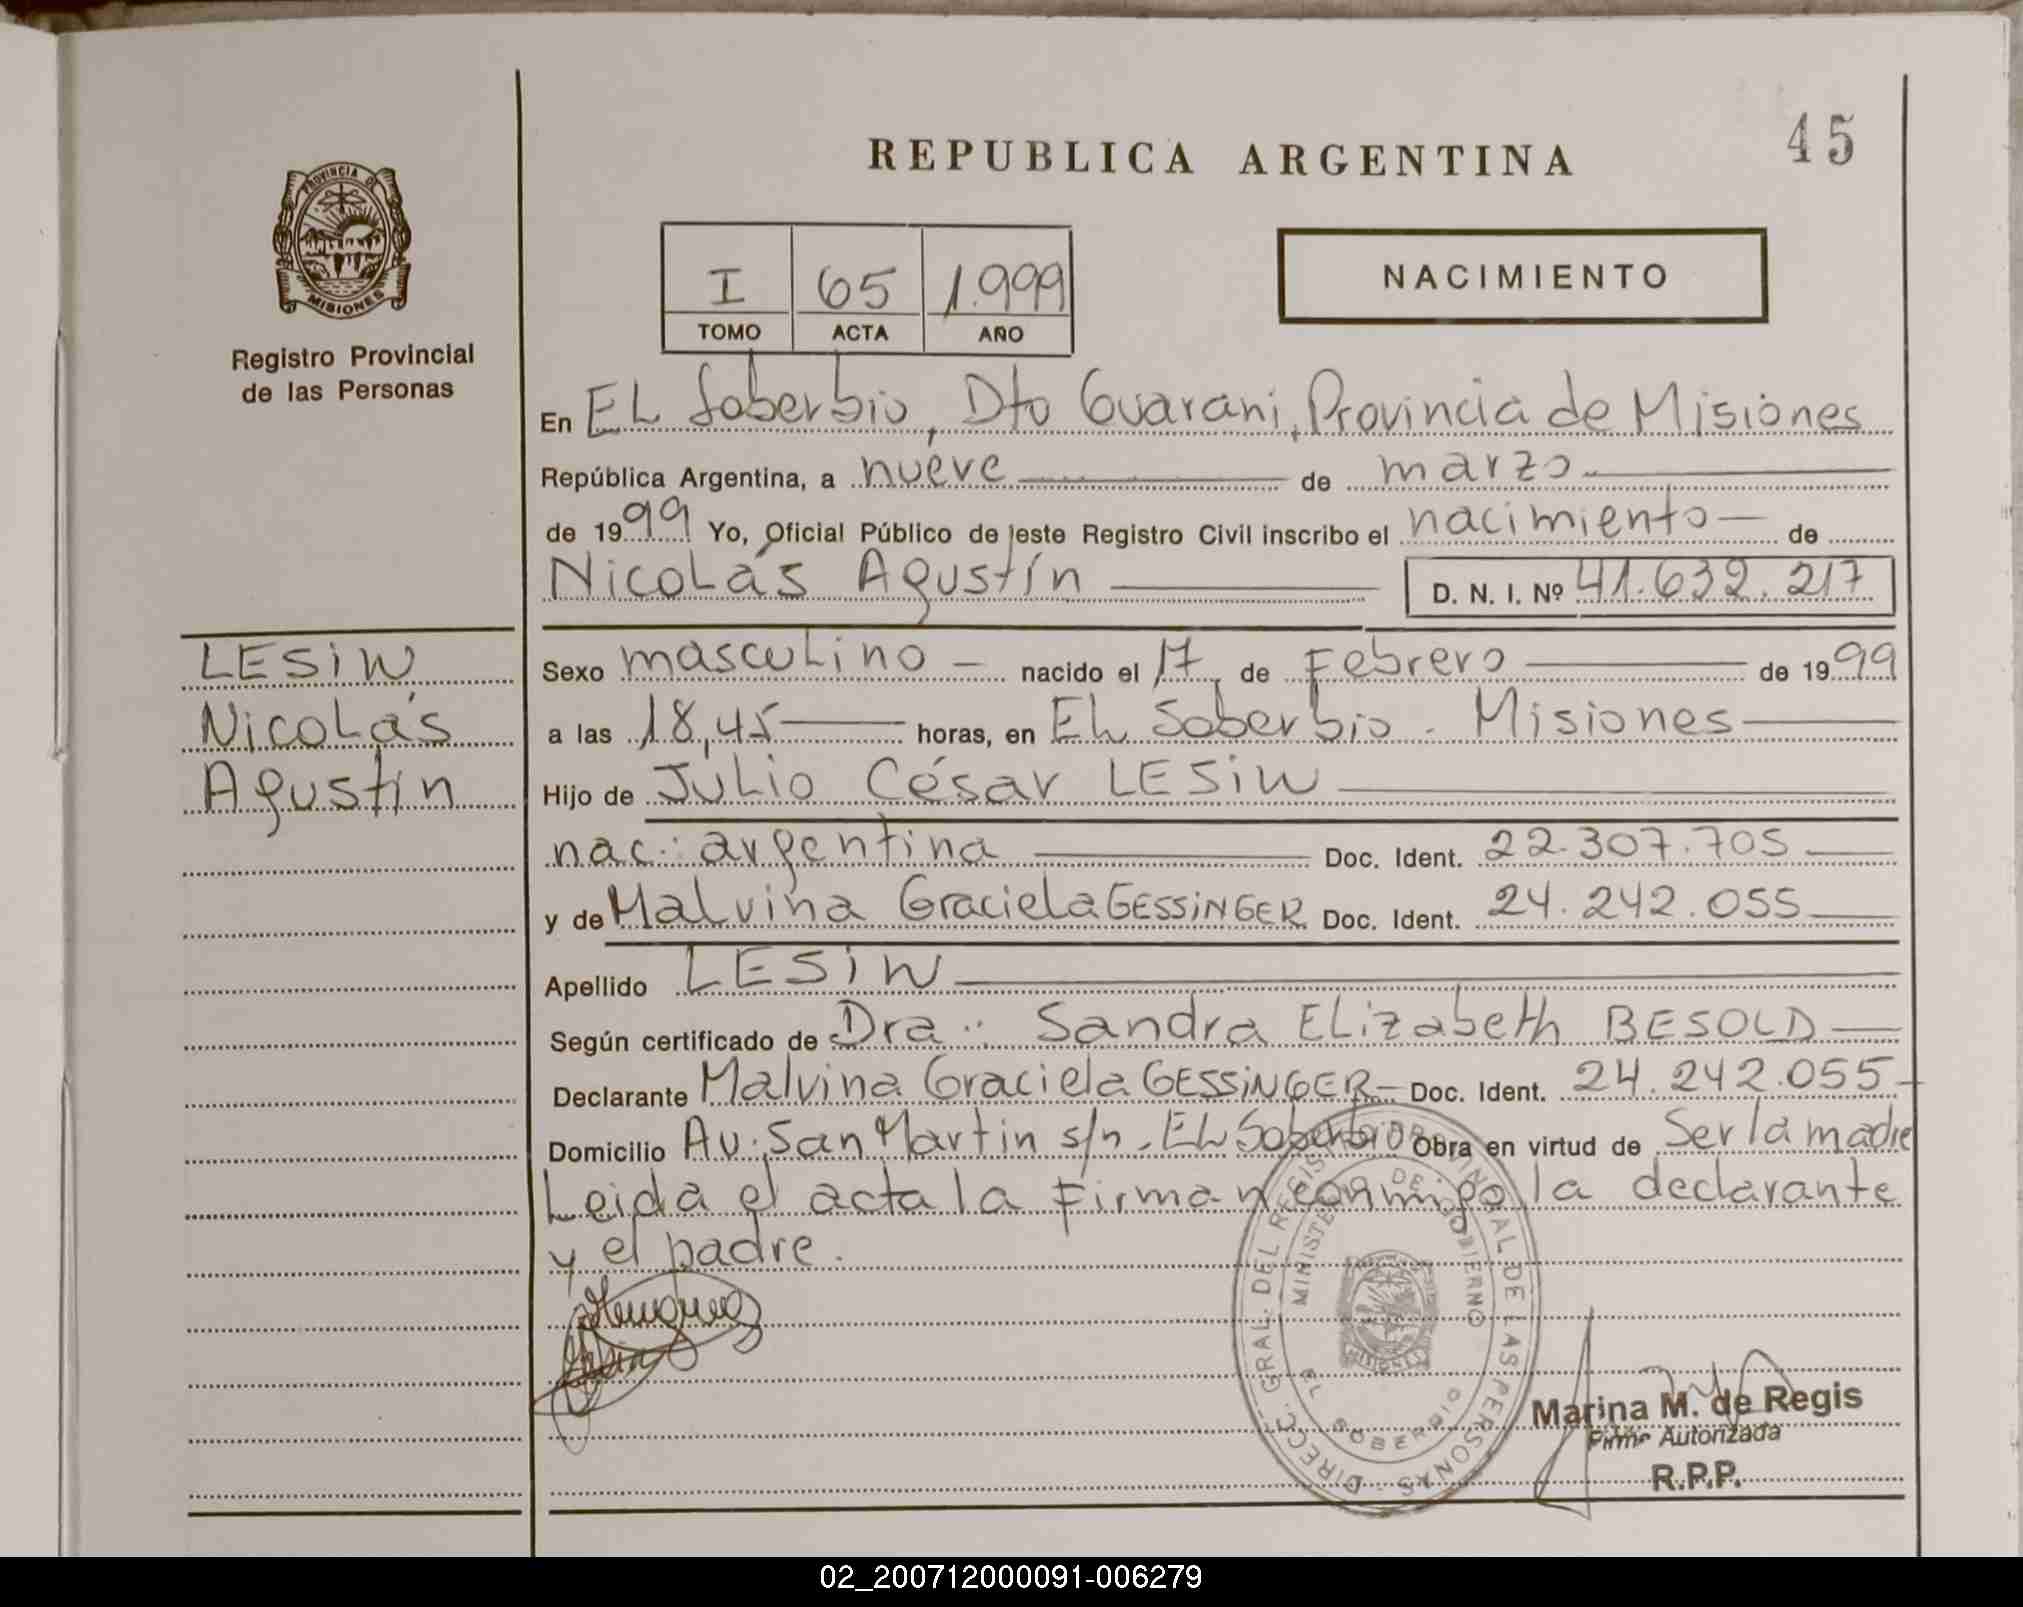 45
REPUBLICA ARGENTINA
PROVINCIA DE
MISIONES
Registro Provincial
de las Personas
I 65 1.999
TOMO ACTA AÑO
NACIMIENTO
En EL Soberbio, Dto Guarani, Provincia de Misiones
República Argentina, a nueve de marzo
de 1999 Yo, Oficial Público de este Registro Civil inscribo el nacimiento de
Nicolás Agustín D. N. I. Nº 41.632.217
LESIW
Nicolás
Agustín
Sexo masculino nacido el 17 de Febrero de 1999
a las 18,45 horas, en EL Soberbio - Misiones
Hijo de Julio César LESIW
nac: argentina Doc. Ident. 22.307.705
y de Malvina Graciela GESSINGER Doc. Ident. 24.242.055
Apellido LESIW
Según certificado de Dra: Sandra Elizabeth BESOLD
Declarante Malvina Graciela GESSINGER Doc. Ident. 24.242.055
Domicilio Av. San Martin s/n - EL Soberbio Obra en virtud de Ser la madre
Leida el acta la firman conmigo la declarante
y el padre.
DIRECC. GRAL. DEL REGISTRO PROVINCIAL DE LAS PERSONAS
MINISTERIO DE GOBIERNO
MISIONES
EL SOBERBIO
Marina M. de Regis
Firma Autorizada
R.P.P.
02_200712000091-006279